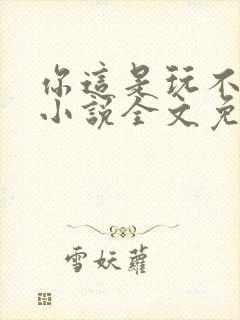 你這是玩不
小說全文免
雪妖蘿